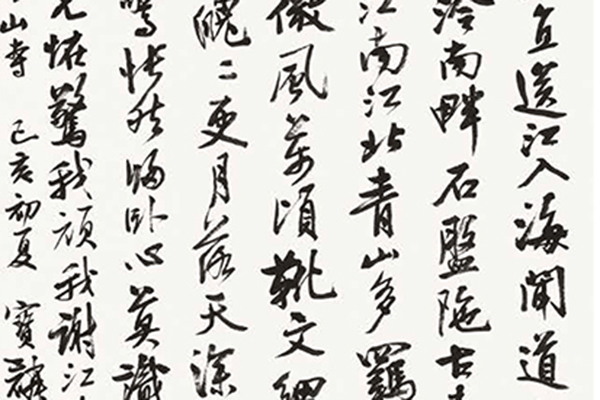 直送江入海聞道
泠南畔石盤陁古
江南江北青山多羈
微風萬頃靴文細
魄二更月落天深
驚悵然歸臥心莫識
見怪驚我頑我謝江
山寺 己亥初夏 寶